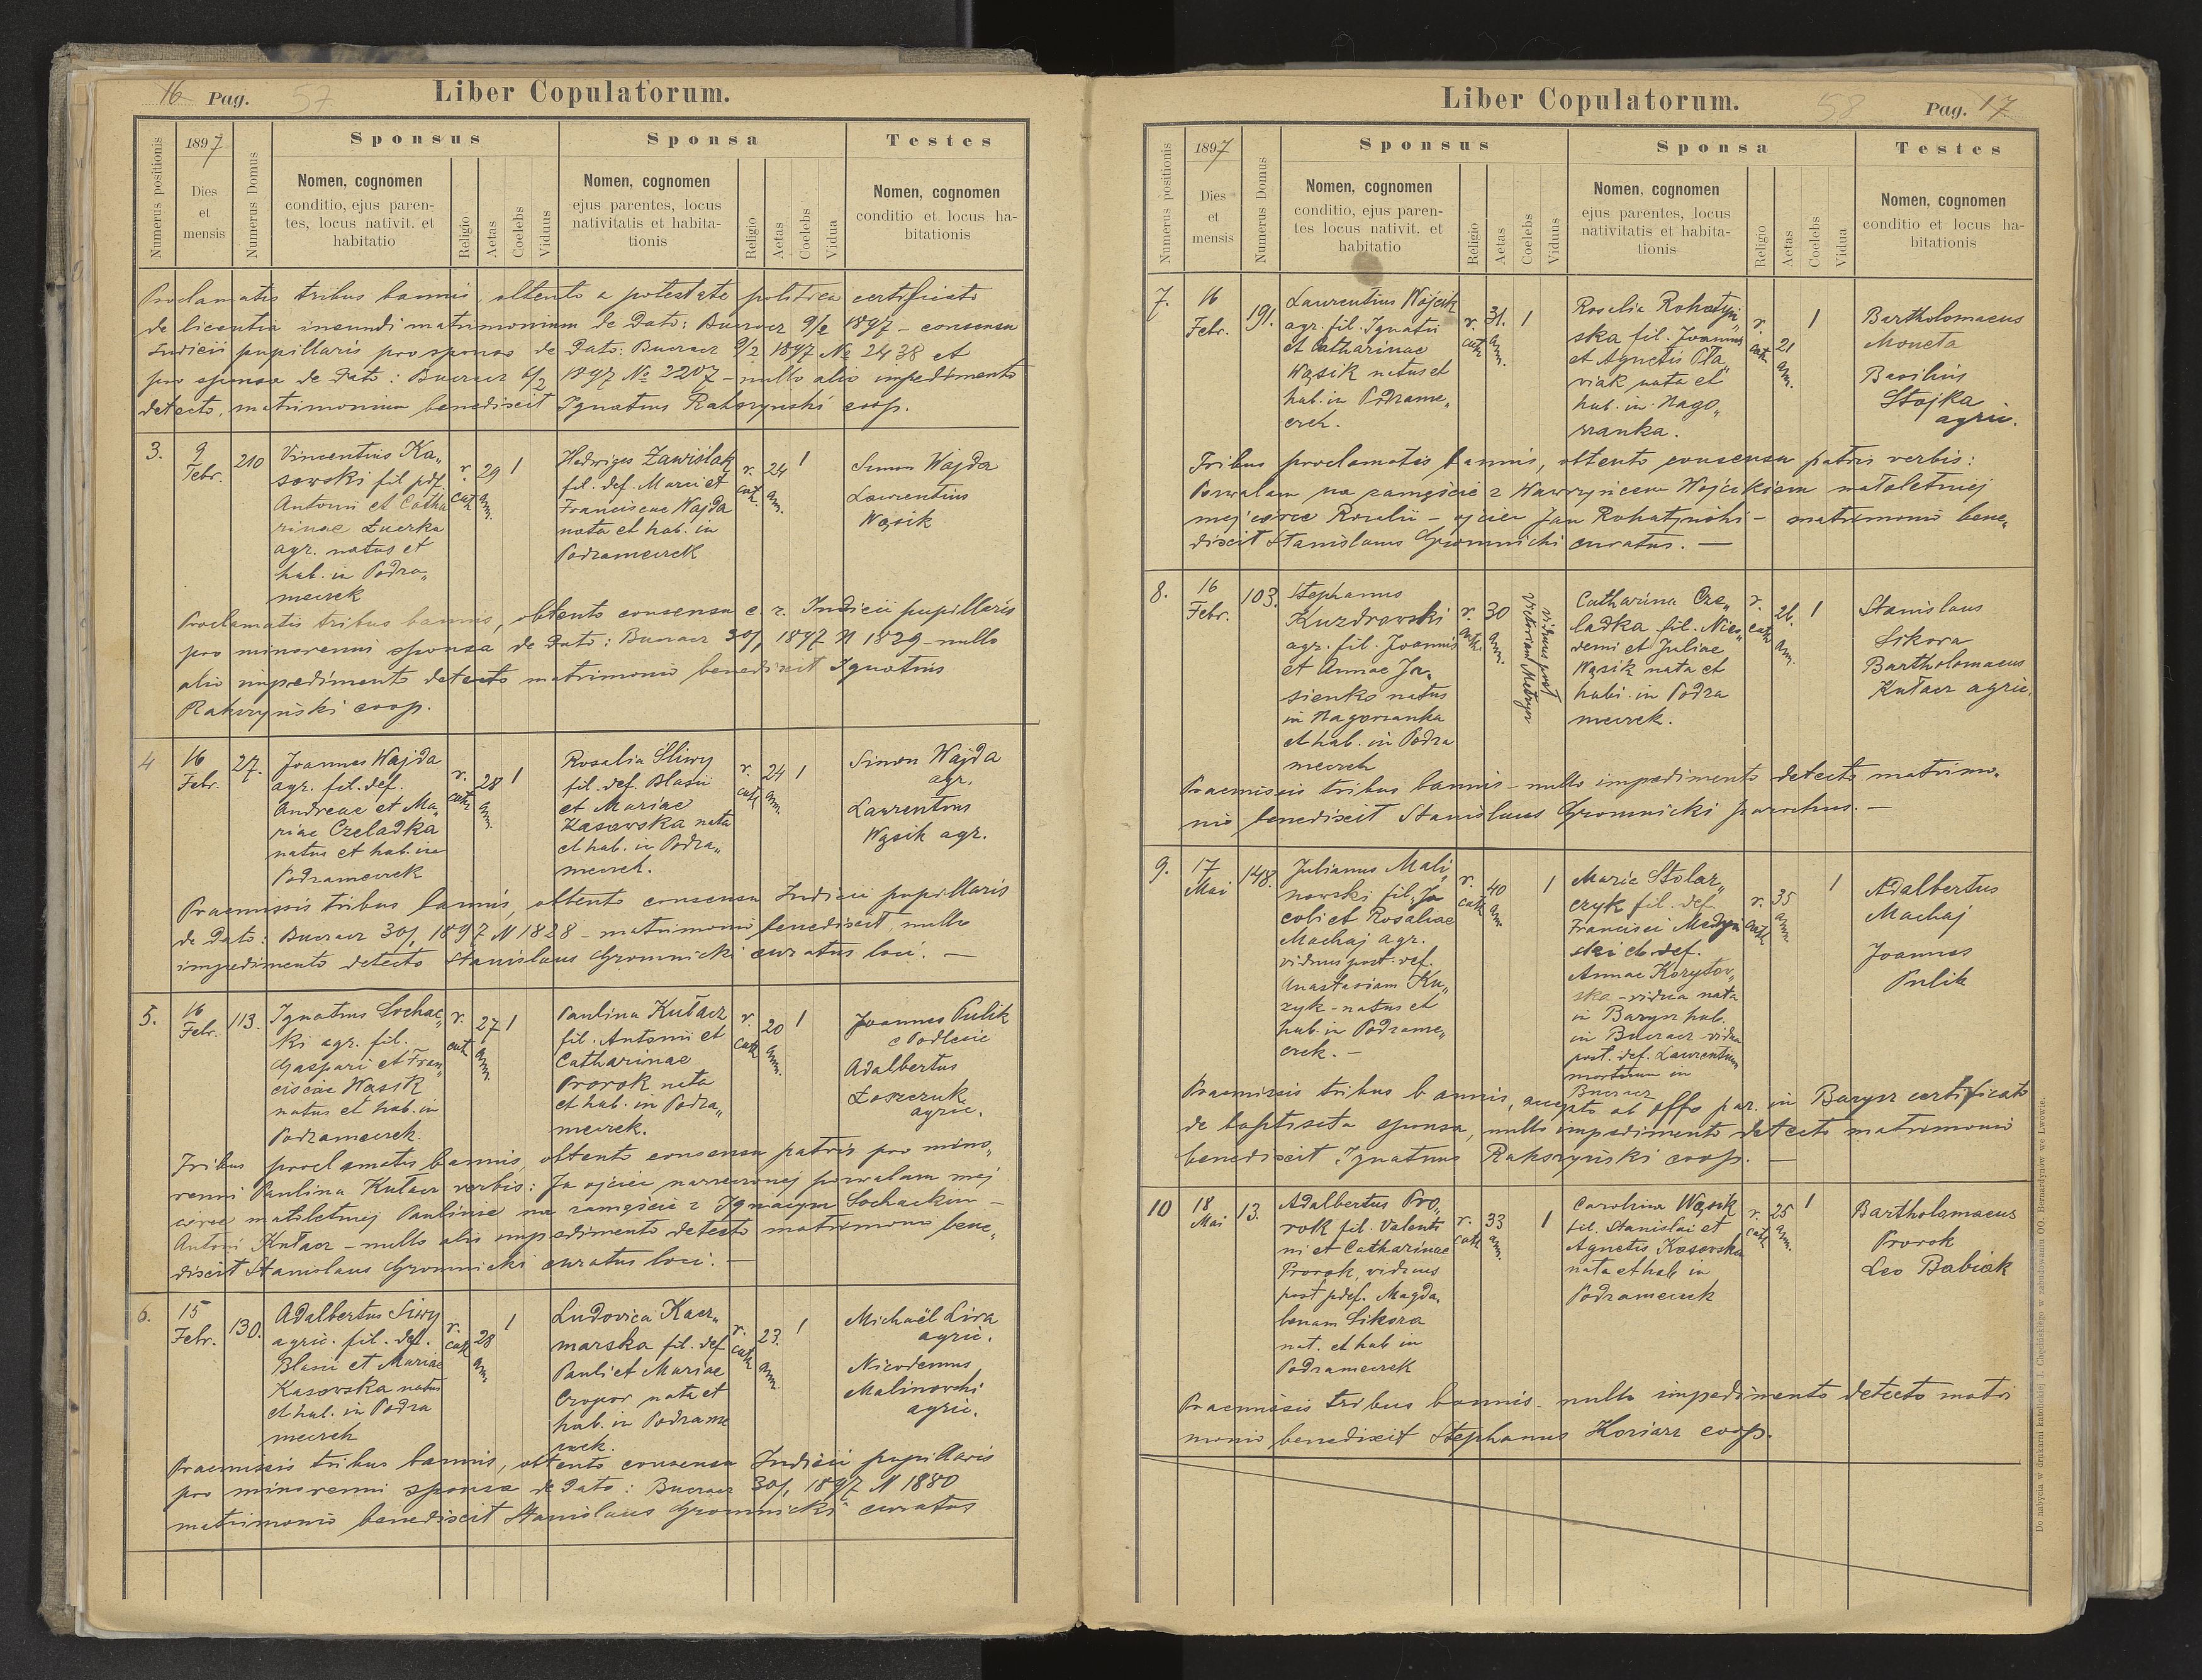 16 Pag. 57
Liber Copulatorum.
Numerus positionis
1897
Dies
et
mensis
Numerus Domus
Sponsus
Nomen, cognomen
conditio, ejus paren-
tes, locus nativit. et
habitatio
Religio
Aetas
Coelebs
Viduus
Sponsa
Nomen, cognomen
ejus parentes, locus
nativitatis et habita-
tionis
Religio
Aetas
Coelebs
Vidua
Testes
Nomen, cognomen
conditio et locus ha-
bitationis
Proclamatis tribus bannis, obtento a potestate politica certificato
de licentia ineundi matrimonium de Dato: Buczacz 9/2 1897 – consensu
Iudicii pupillaris pro sponso de Dato: Buczacz 9/2 1897 № 2438 et
pro sponsa de Dato: Buczacz 6/2 1897 № 2207 – nullo alio impedimento
detecto, matrimonium benedixit Ignatius Rakszyński coop.
3.
9
Febr.
210
Vincentius Ka„
sowski fil. pdf.
Antonii et Catha
rinae Łuczka
agr. natus et
hab. in Podza„
meczek
r.
cath
29
ann.
1
Hedviges Zawiślak
fil. def. Marci et
Franciscae Wajda
nata et hab. in
Podzameczek
r.
cath.
24
ann.
1
Simon Wajda
Laurentius
Wąsik
Proclamatis tribus bannis, obtento consensu c. r. Iudicii pupillaris
pro minorenni sponsa de Dato: Buczacz 30/1 1897 N 1829 – nullo
alio impedimento detecto matrimonio benedixit Ignatius
Rakszyński coop.
4
16
Febr.
27.
Joannes Wajda
agr. fil. def.
Andreae et Ma„
riae Czeladka
natus et hab. in
Podzameczek
r.
cath
28
ann.
1
Rosalia Sliwy
fil. def. Blasii
et Mariae
Kasowska nata
et hab. in Podza„
meczek.
r.
cath
24
ann.
1
Simon Wajda
agr.
Laurentius
Wąsik agr.
Praemissis tribus bannis, obtento consensu Iudicii pupillaris
de Dato: Buczacz 30/1 1897 N 1828 – matrimonio benedixit, nullo
impedimento detecto Stanislaus Gromnicki curatus loci. –
5.
16
Febr.
113.
Ignatius Sochac„
ki agr. fil.
Gaspari et Fran„
ciscae Wąsik
natus et hab. in
Podzameczek.
r.
cath
27
ann.
1
Paulina Kułacz
fil. Antonii et
Catharinae
Prorok nata
et hab. in Podza„
meczek.
r.
cath
20
ann.
1
Joannes Pulik
e Podlesie
Adalbertus
Łoszczuk
agric.
Tribus proclamatis bannis, obtento consensu patris pro mino„
renni Paulina Kułacz verbis: Ja ojciec narzeczonej pozwalam mej
córce małoletniej Paulinie na zamęście z Ignacym Sochackim –
Antoni Kułacz – nullo alio impedimento detecto matrimonio bene„
dixit Stanislaus Gromnicki curatus loci. –
6.
15
Febr.
130.
Adalbertus Siwy
agric. fil. def.
Blasii et Mariae
Kasowska natus
et hab. in Podza
meczek
r.
cath
28
ann.
1
Ludovica Kacz„
marska fil. def
Pauli et Mariae
Czopor nata et
hab. in Podzame
czek.
r.
cath
23.
ann.
1
Michaël Siwa
agric.
Nicodemus
Malinowski
agric.
Praemissis tribus bannis, obtento consensu Iudicii pupillaris
pro minorenni sponsa de Dato: Buczacz 30/1 1897 N 1880
matrimonio benedixit Stanislaus Gromnicki curatus
Liber Copulatorum.
58 Pag. 17
Numerus positionis
1897
Dies
et
mensis
Numerus Domus
Sponsus
Nomen, cognomen
conditio, ejus paren-
tes locus nativit. et
habitatio
Religio
Aetas
Coelebs
Viduus
Sponsa
Nomen, cognomen
ejus parentes, locus
nativitatis et habita-
tionis
Religio
Aetas
Coelebs
Vidua
Testes
Nomen, cognomen
conditio et locus ha-
bitationis
7.
16
Febr.
191.
Laurentius Wójcik
agr. fil. Ignatii
et Catharinae
Wąsik natus et
hab. in Podzame„
czek.
r.
cath
31.
ann.
1
Rosalia Rohatyń„
ska fil. Joannis
et Agnetis Pta„
wiak nata et
hab. in Nago„
rzanka.
r.
cath
21
ann.
1
Bartholomaeus
Moneta
Basilius
Stojka
agric.
Tribus proclamatis bannis, obtento consensu patris verbis:
Pozwalam na zamęście z Wawrzyńcem Wójcikiem małoletniej
mej córce Rozalii – ojciec Jan Rohatyński – matrimonio bene„
dixit Stanislaus Gromnicki curatus. –
8.
16
Febr.
103.
Stephanus
Kuzdrowski
agr. fil. Joannis
et Annae Ja„
sienko natus
in Nagorzanka
et hab. in Podza
meczek
r.
cath.
30
ann.
viduus post
Victoriam
Catharina Cze„
ladka fil. Nico„
demi et Juliae
Wąsik nata et
habi. in Podza
meczek.
r.
cath
26.
ann.
1
Stanislaus
Sikora
Bartholomaeus
Kułacz agric.
Praemissis tribus bannis – nullo impedimento detecto matrimo„
nio benedixit Stanislaus Gromnicki parochus. –
9.
17
Mai
148.
Julianus Mali„
nowski fil. Ja
cobi et Rosaliae
Machaj agr.
viduus post. def.
Anastasiam Ku„
zyk – natus et
hab. in Podzame„
czek. –
r.
cath
40
ann.
1
Maria Stolar„
czyk fil. def.
Francisci Medyń
ski et def.
Annae Korytow„
ska – vidua nata
in Barysz hab.
in Buczacz – vidua
post. def. Laurentium
mortuum in
Buczacz
r.
cath
35
ann.
1
Adalbertus
Machaj
Joannes
Pulik
Praemissis tribus bannis, accepto ab offo par. in Barysz certificato
de baptisata sponsa, nullo impedimento detecto matrimonio
benedixit Ignatius Rakszyński coop. –
10
18
Mai
13.
Adalbertus Pro„
rok fil. Valenti
ni et Catharinae
Prorok, viduus
post pdef. Magda„
lenam Sikora
nat. et hab in
Podzameczek
r.
cath
33
ann.
1
Carolina Wąsik
fil. Stanislai et
Agnetis Kasowska
nata et hab in
Podzameczek
r.
cath
25
ann.
1
Bartholomaeus
Prorok
Leo Babiak
Praemissis tribus bannis – nullo impedimento detecto matri
monio benedixit Stephanus Koriarz coop.
Do nabycia w drukarni katolickiej J. Chęcińskiego w zabudowaniu OO. Bernardynów we Lwowie.